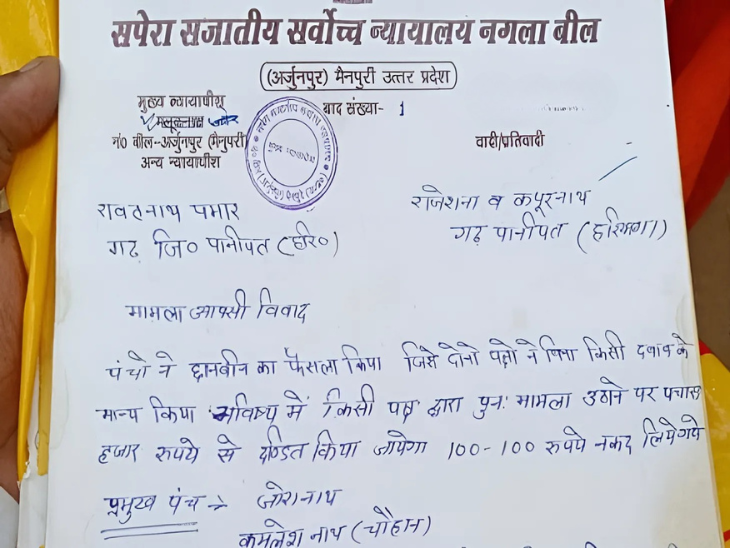 सपेरा सजातीय सर्वोच्च न्यायालय नगला बील
(अर्जुनपुर) मैनपुरी उत्तर प्रदेश
मुख्य न्यायाधीश
वाद संख्या- 1
न० बील-अर्जुनपुर (मैनपुरी)
वादी/प्रतिवादी
अन्य न्यायाधीश
रावतनाथ पमार
राजेशनाथ व कपूरनाथ
गढ़ जि० पानीपत (हरि०)
गढ़ पानीपत (हरियाणा)
मामला आपसी विवाद
पंचो ने छानबीन का फैसला किया जिसे दोनो पक्षो ने बिना किसी दबाव के
मान्य किया भविष्य में किसी पक्ष द्वारा पुनः मामला उठाने पर पचास
हजार रुपये से दण्डित किया जायेगा 100-100 रुपये नकद लिये गये
प्रमुख पंच → जोरानाथ
कमलेश नाथ (चौहान)